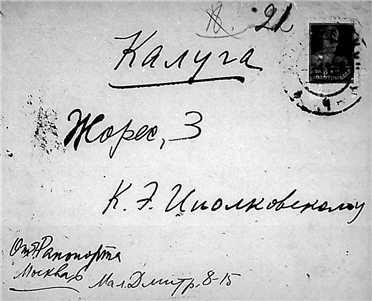 21
Калуга
Жорес, 3
К. Э. Циолковскому
От Рапопорта
Москва 6 Мал. Дмитр. 8-15